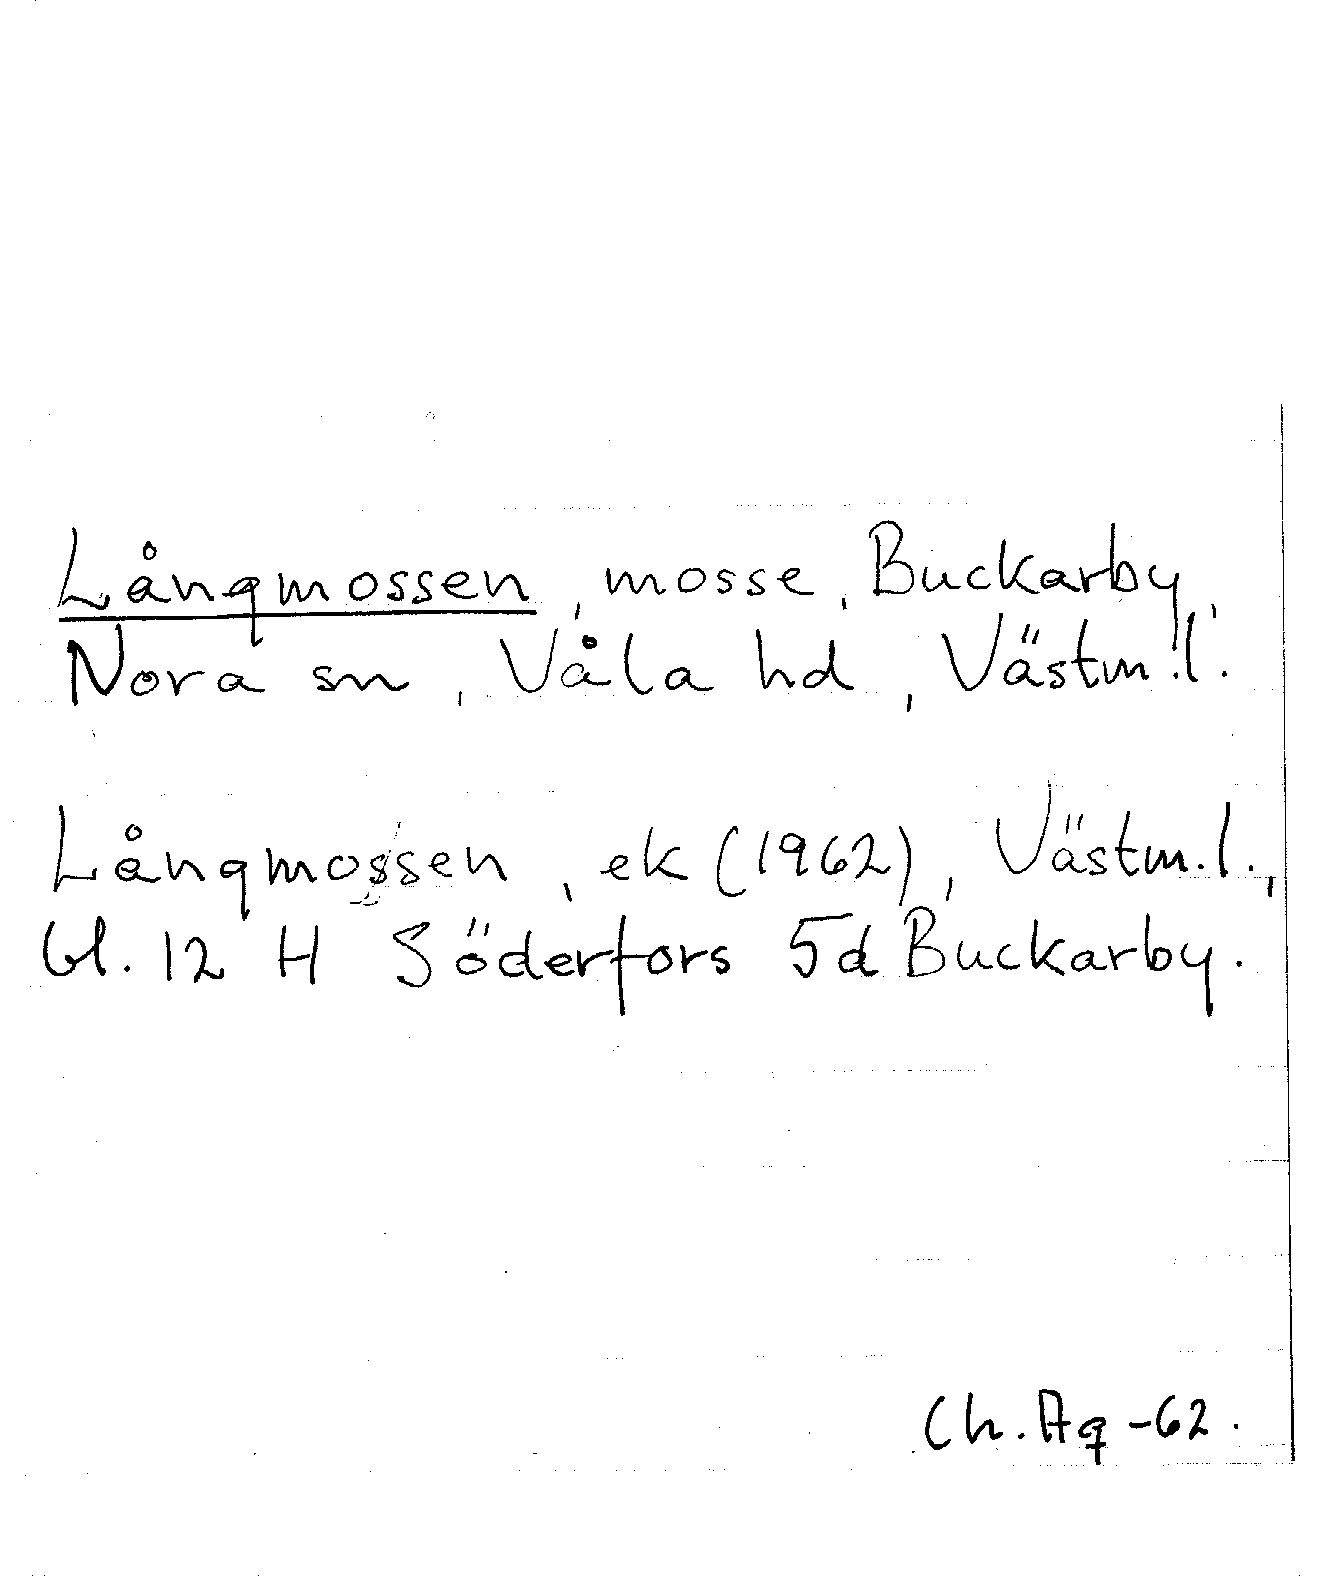 Långmossen, mosse, Buckarby,
Nora sn, Våla hd, Västm.l.
Långmossen, ek (1962), Västm.l.,
bl. 12 H Söderfors 5d Buckarby.
Ch. Ag -62.